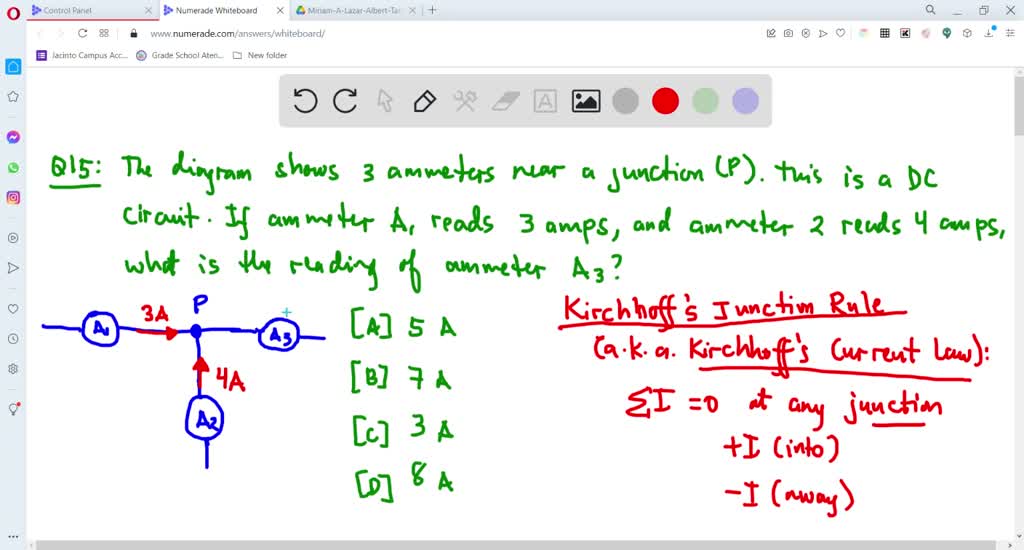 Control Panel
Numerade Whiteboard
Miriam-A-Lazar-Albert-Tar
www.numerade.com/answers/whiteboard/
Jacinto Campus Acc...
Grade School Aten...
New folder
A
Q15: The diagram shows 3 ammeters near a junction (P). This is a DC
circuit. If ammeter A1 reads 3 amps, and ammeter 2 reads 4 amps,
what is the reading of ammeter A3?
3A
P
A1
A3
4A
A2
[A] 5 A
[B] 7 A
[C] 3 A
[D] 8 A
Kirchhoff's Junction Rule
(a.k.a. Kirchhoff's Current Law):
ΣI = 0 at any junction
+I (into)
-I (away)